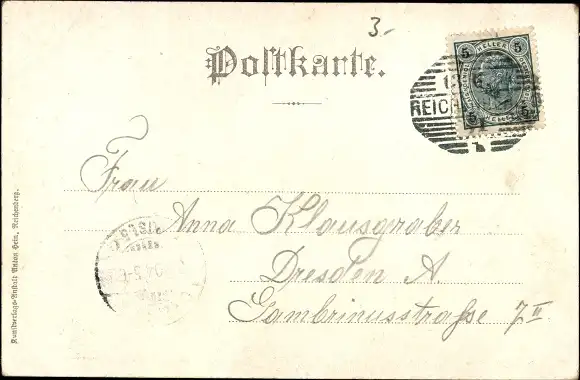 3.-
Postkarte.
5 HELLER 5
REICH
1
Frau
Anna Klausgraber
Dresden A.
Gambrinusstraße 7 II
Kunstverlags-Anstalt Anton Grin, Reichenberg.